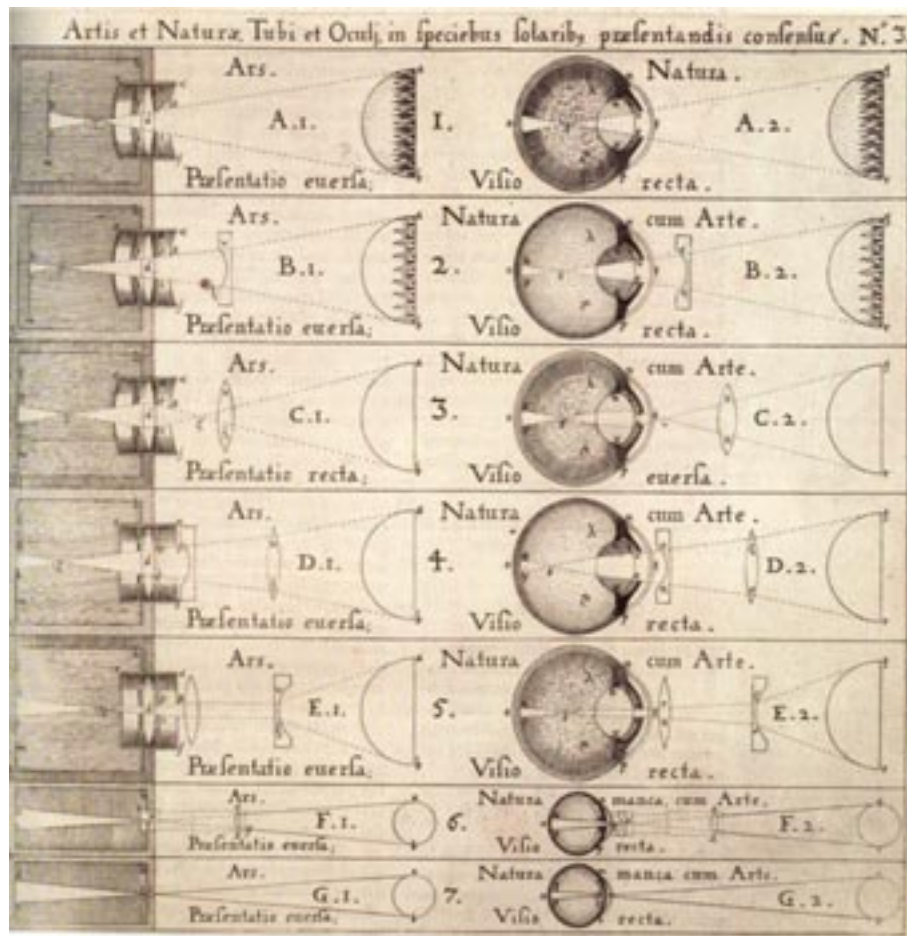 Artis et Naturæ, Tubi et Oculi, in speciebus solarib9 præsentandis consensus. N°. 3
Ars. Natura.
A.1. 1. A.2.
Præsentatio euersa; Visio recta.
Ars. Natura cum Arte.
B.1. 2. B.2.
Præsentatio euersa; Visio recta.
Ars. Natura cum Arte.
C.1. 3. C.2.
Præsentatio recta; Visio euersa.
Ars. Natura cum Arte.
D.1. 4. D.2.
Præsentatio euersa; Visio recta.
Ars. Natura cum Arte.
E.1. 5. E.2.
Præsentatio euersa; Visio recta.
Ars. Natura manca, cum Arte.
F.1. 6. F.2.
Præsentatio euersa; Visio recta.
Ars. Natura manca cum Arte.
G.1. 7. G.2.
Præsentatio euersa; Visio recta.